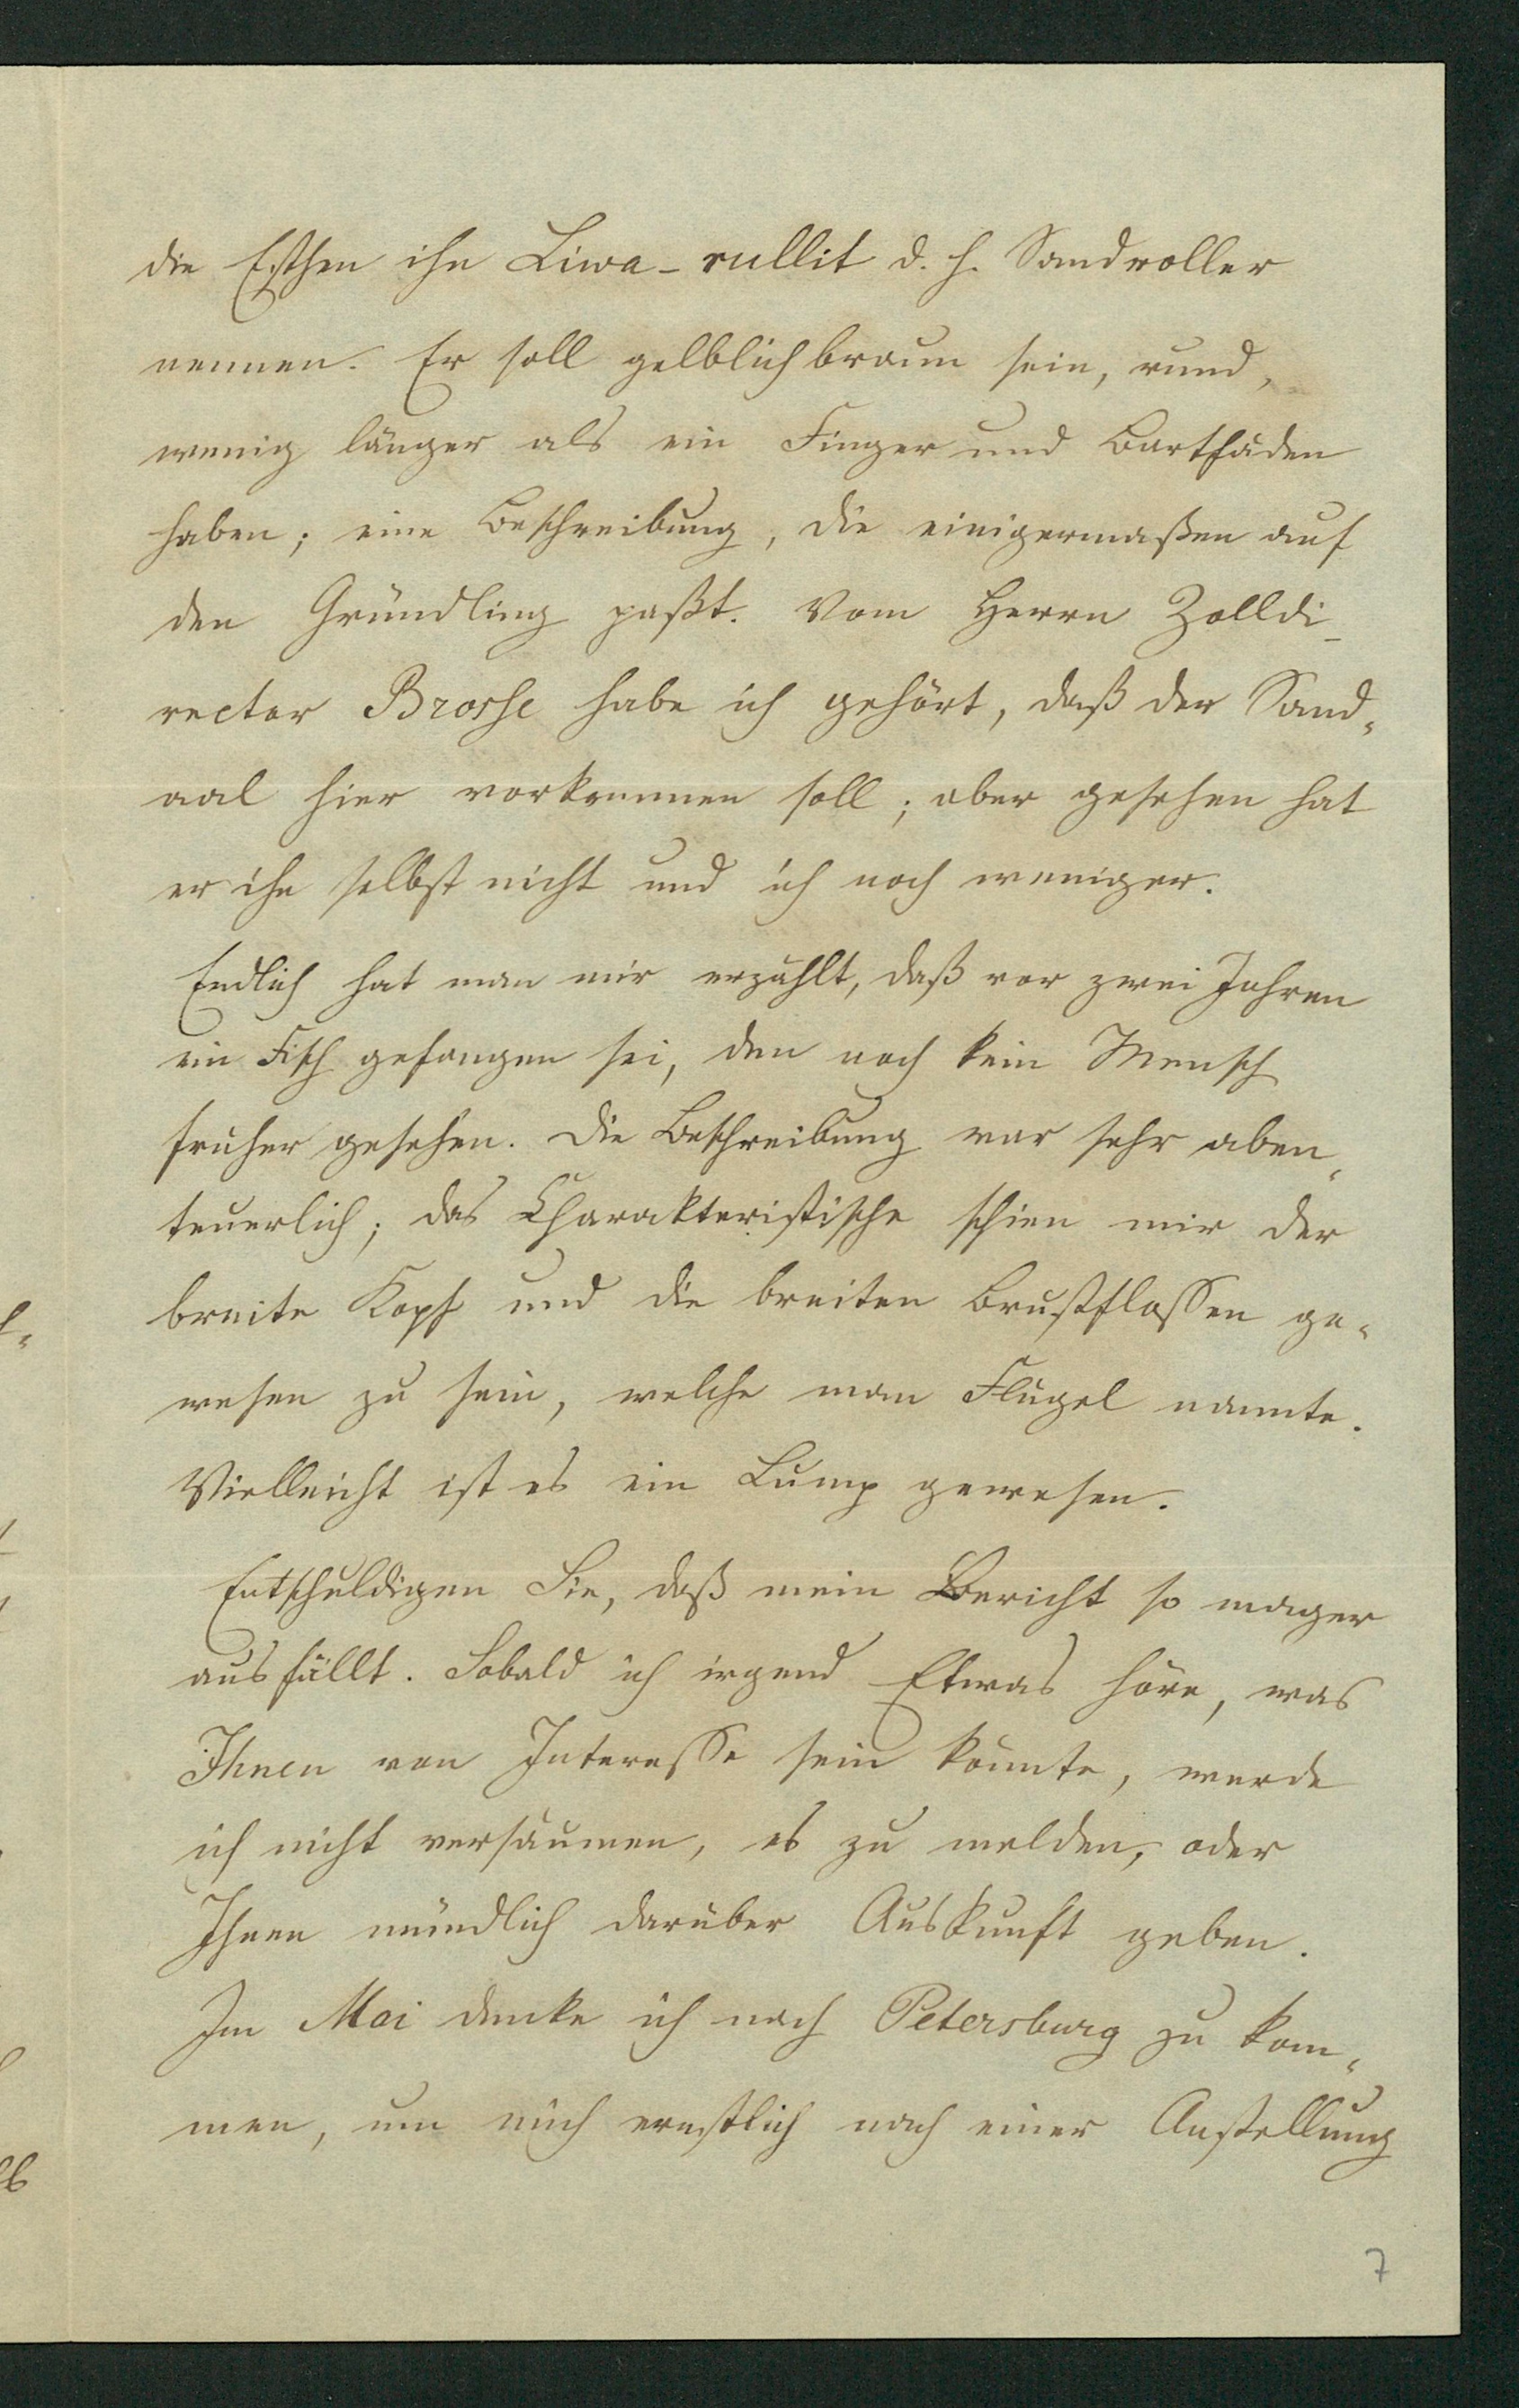 die Esthen ihn Liwa-rullit d. h. Sandroller
nennen. Er soll gelblichbraun sein, rund,
wenig länger als ein Finger und Bartfäden
haben; eine Beschreibung, die einigermaßen auf
den Gründling paßt. Vom Herrn Zolldi-
rector Brosse habe ich gehört, daß der Sand-
aal hier vorkommen soll; aber gesehen hat
er ihn selbst nicht und ich noch weniger.
Endlich hat man mir erzählt, daß vor zwei Jahren
ein Fisch gefangen sei, den noch kein Mensch
früher gesehen. Die Beschreibung war sehr aben-
teuerlich; das Charakteristische schien mir der
breite Kopf und die breiten Brustflossen ge-
wesen zu sein, welche man Flügel nannte.
Vielleicht ist es ein Lump gewesen.
Entschuldigen Sie, daß mein Bericht so mager
ausfällt. Sobald ich irgend Etwas höre, was
Ihnen von Interesse sein könnte, werde
ich nicht versäumen, es zu melden, oder
Ihnen mündlich darüber Auskunft geben.
Im Mai denke ich nach Petersburg zu kom-
men, um mich ernstlich nach einer Anstellung
7